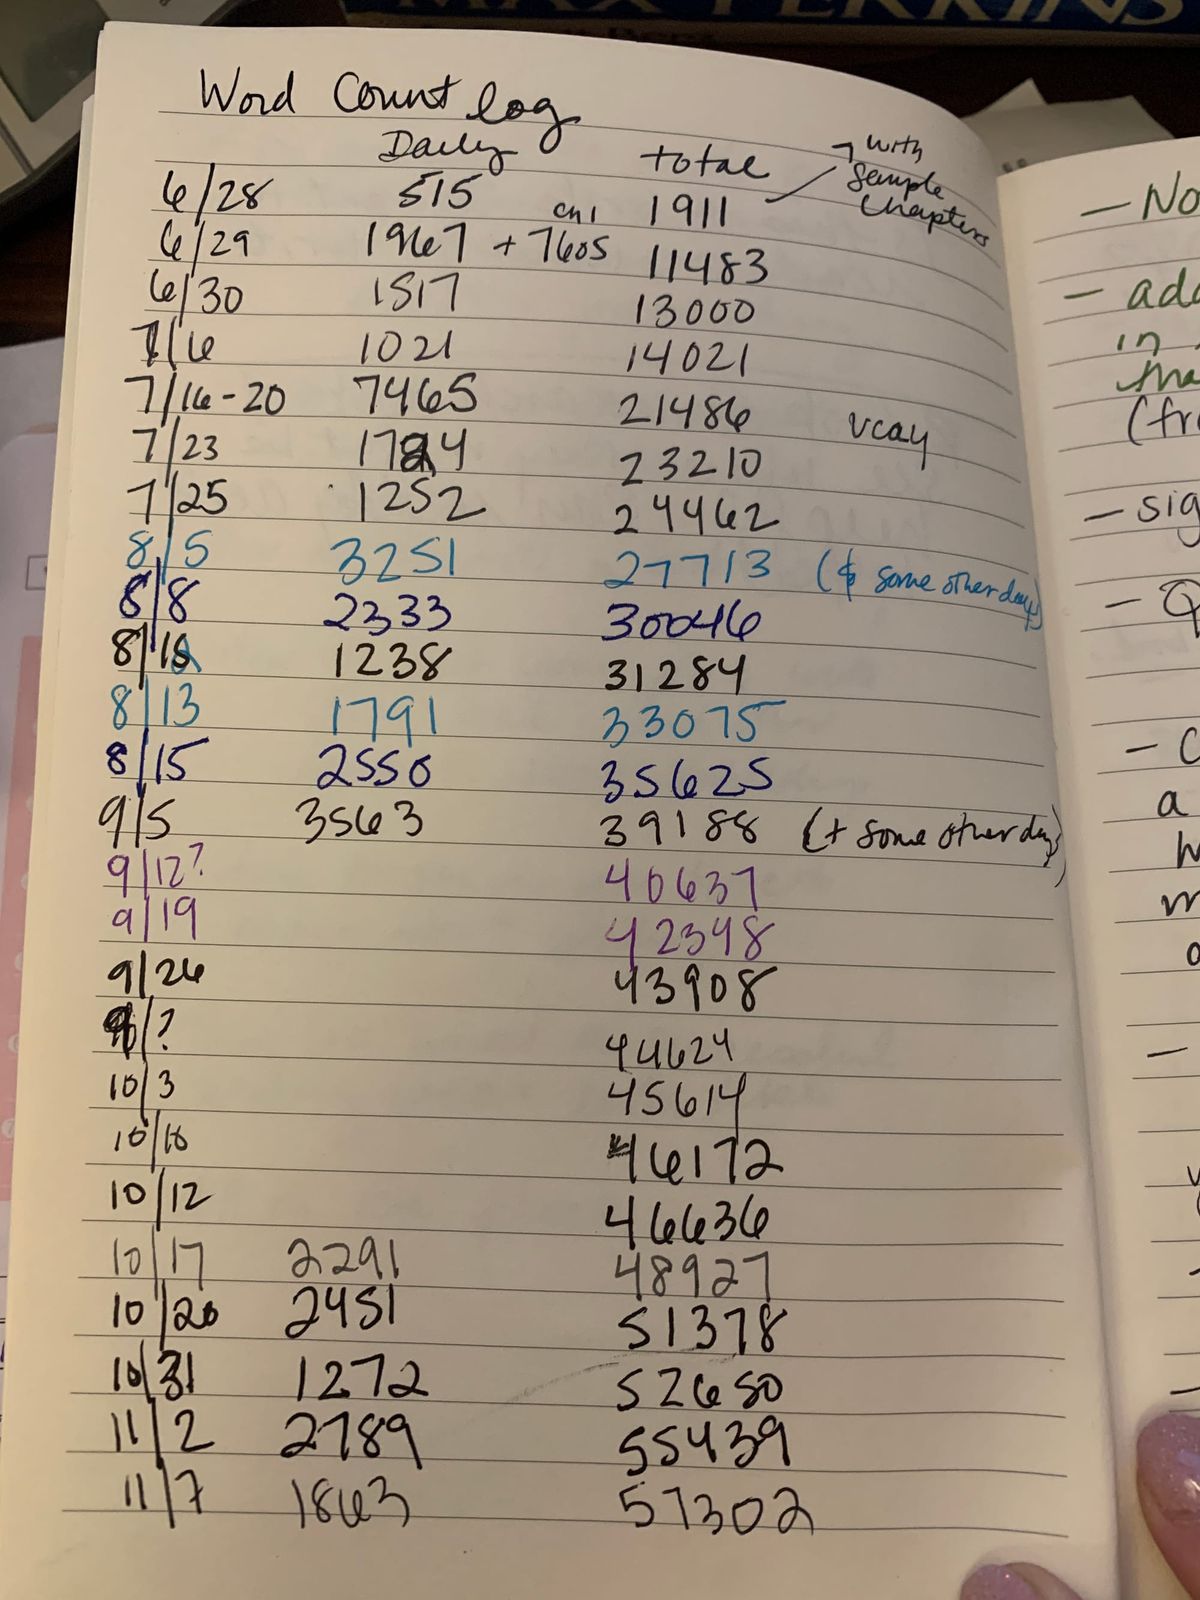 MAX PERKINS
Word Count log
Daily total → with
Sample
Chapters
6/28 515 1911
6/29 1967 + 7605 ch1 11483
6/30 1517 13000
7/6 1021 14021
7/16-20 7465 21486 vcay
7/23 1724 23210
7/25 1252 24462
8/5 3251 27713 (& some other days)
8/8 2333 30046
8/12 1238 31284
8/13 1791 33075
8/15 2550 35625
9/5 3563 39188 (+ some other days)
9/12? 40637
9/19 42348
9/26 43908
9/? 44624
10/3 45614
10/10 46172
10/12 46636
10/17 2291 48927
10/20 2451 51378
10/31 1272 52650
11/2 2789 55439
11/7 1863 57302
— No
— add
in
tha
(fro
— sig
— Q
— C
a
h
m
o